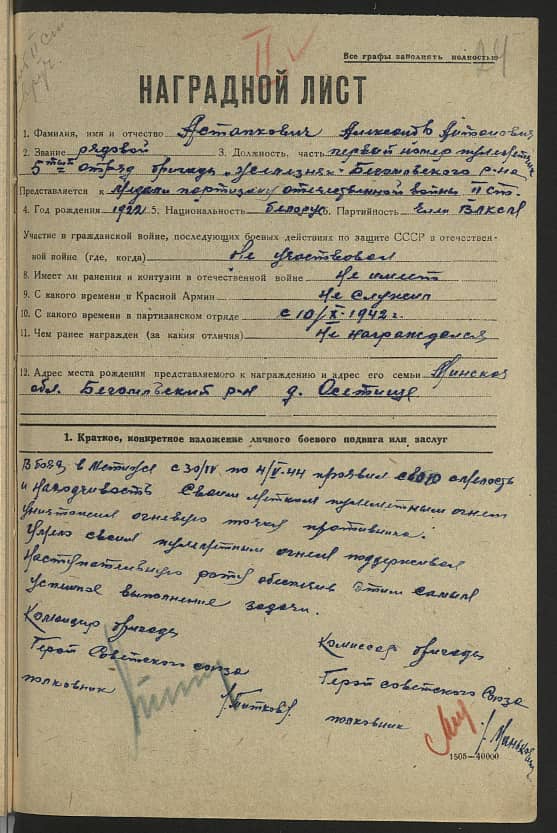 24
Все графы заполнять полностью
НАГРАДНОЙ ЛИСТ
1. Фамилия, имя и отчество Астапкович Александр Антонович
2. Звание рядовой 3. Должность, часть первый номер пулемета
5тый отряд бригады „Железняк" Бегомльского р-на
Представляется к медали партизану отечественной войны II ст.
4. Год рождения 1922 5. Национальность белорус 6. Партийность член ВЛКСМ
Участие в гражданской войне, последующих боевых действиях по защите СССР в отечествен-
ной войне (где, когда) Не участвовал
8. Имеет ли ранения и контузии в отечественной войне Не имеет
9. С какого времени в Красной Армии Не служил
10. С какого времени в партизанском отряде с 10/X-1942 г.
11. Чем ранее награжден (за какия отличия) Не награждался
12. Адрес места рождения представляемого к награждению и адрес его семьи Минская
обл. Бегомльский р-н д. Осетище
1. Краткое, конкретное изложение личного боевого подвига или заслуг
В боях в с 30/IV по 4/V-44 проявил свою смелость
и находчивость своим метким пулеметным огнем
уничтожил огневую точку противника.
Умело своим пулеметным огнем поддерживал
наступательную роту обеспечив этим самым
успешное выполнение задачи.
Командир бригады
Герой Советского союза
полковник /Титков/
Комиссар бригады
Герой советского Союза
полковник /Манькович/
1505—40000